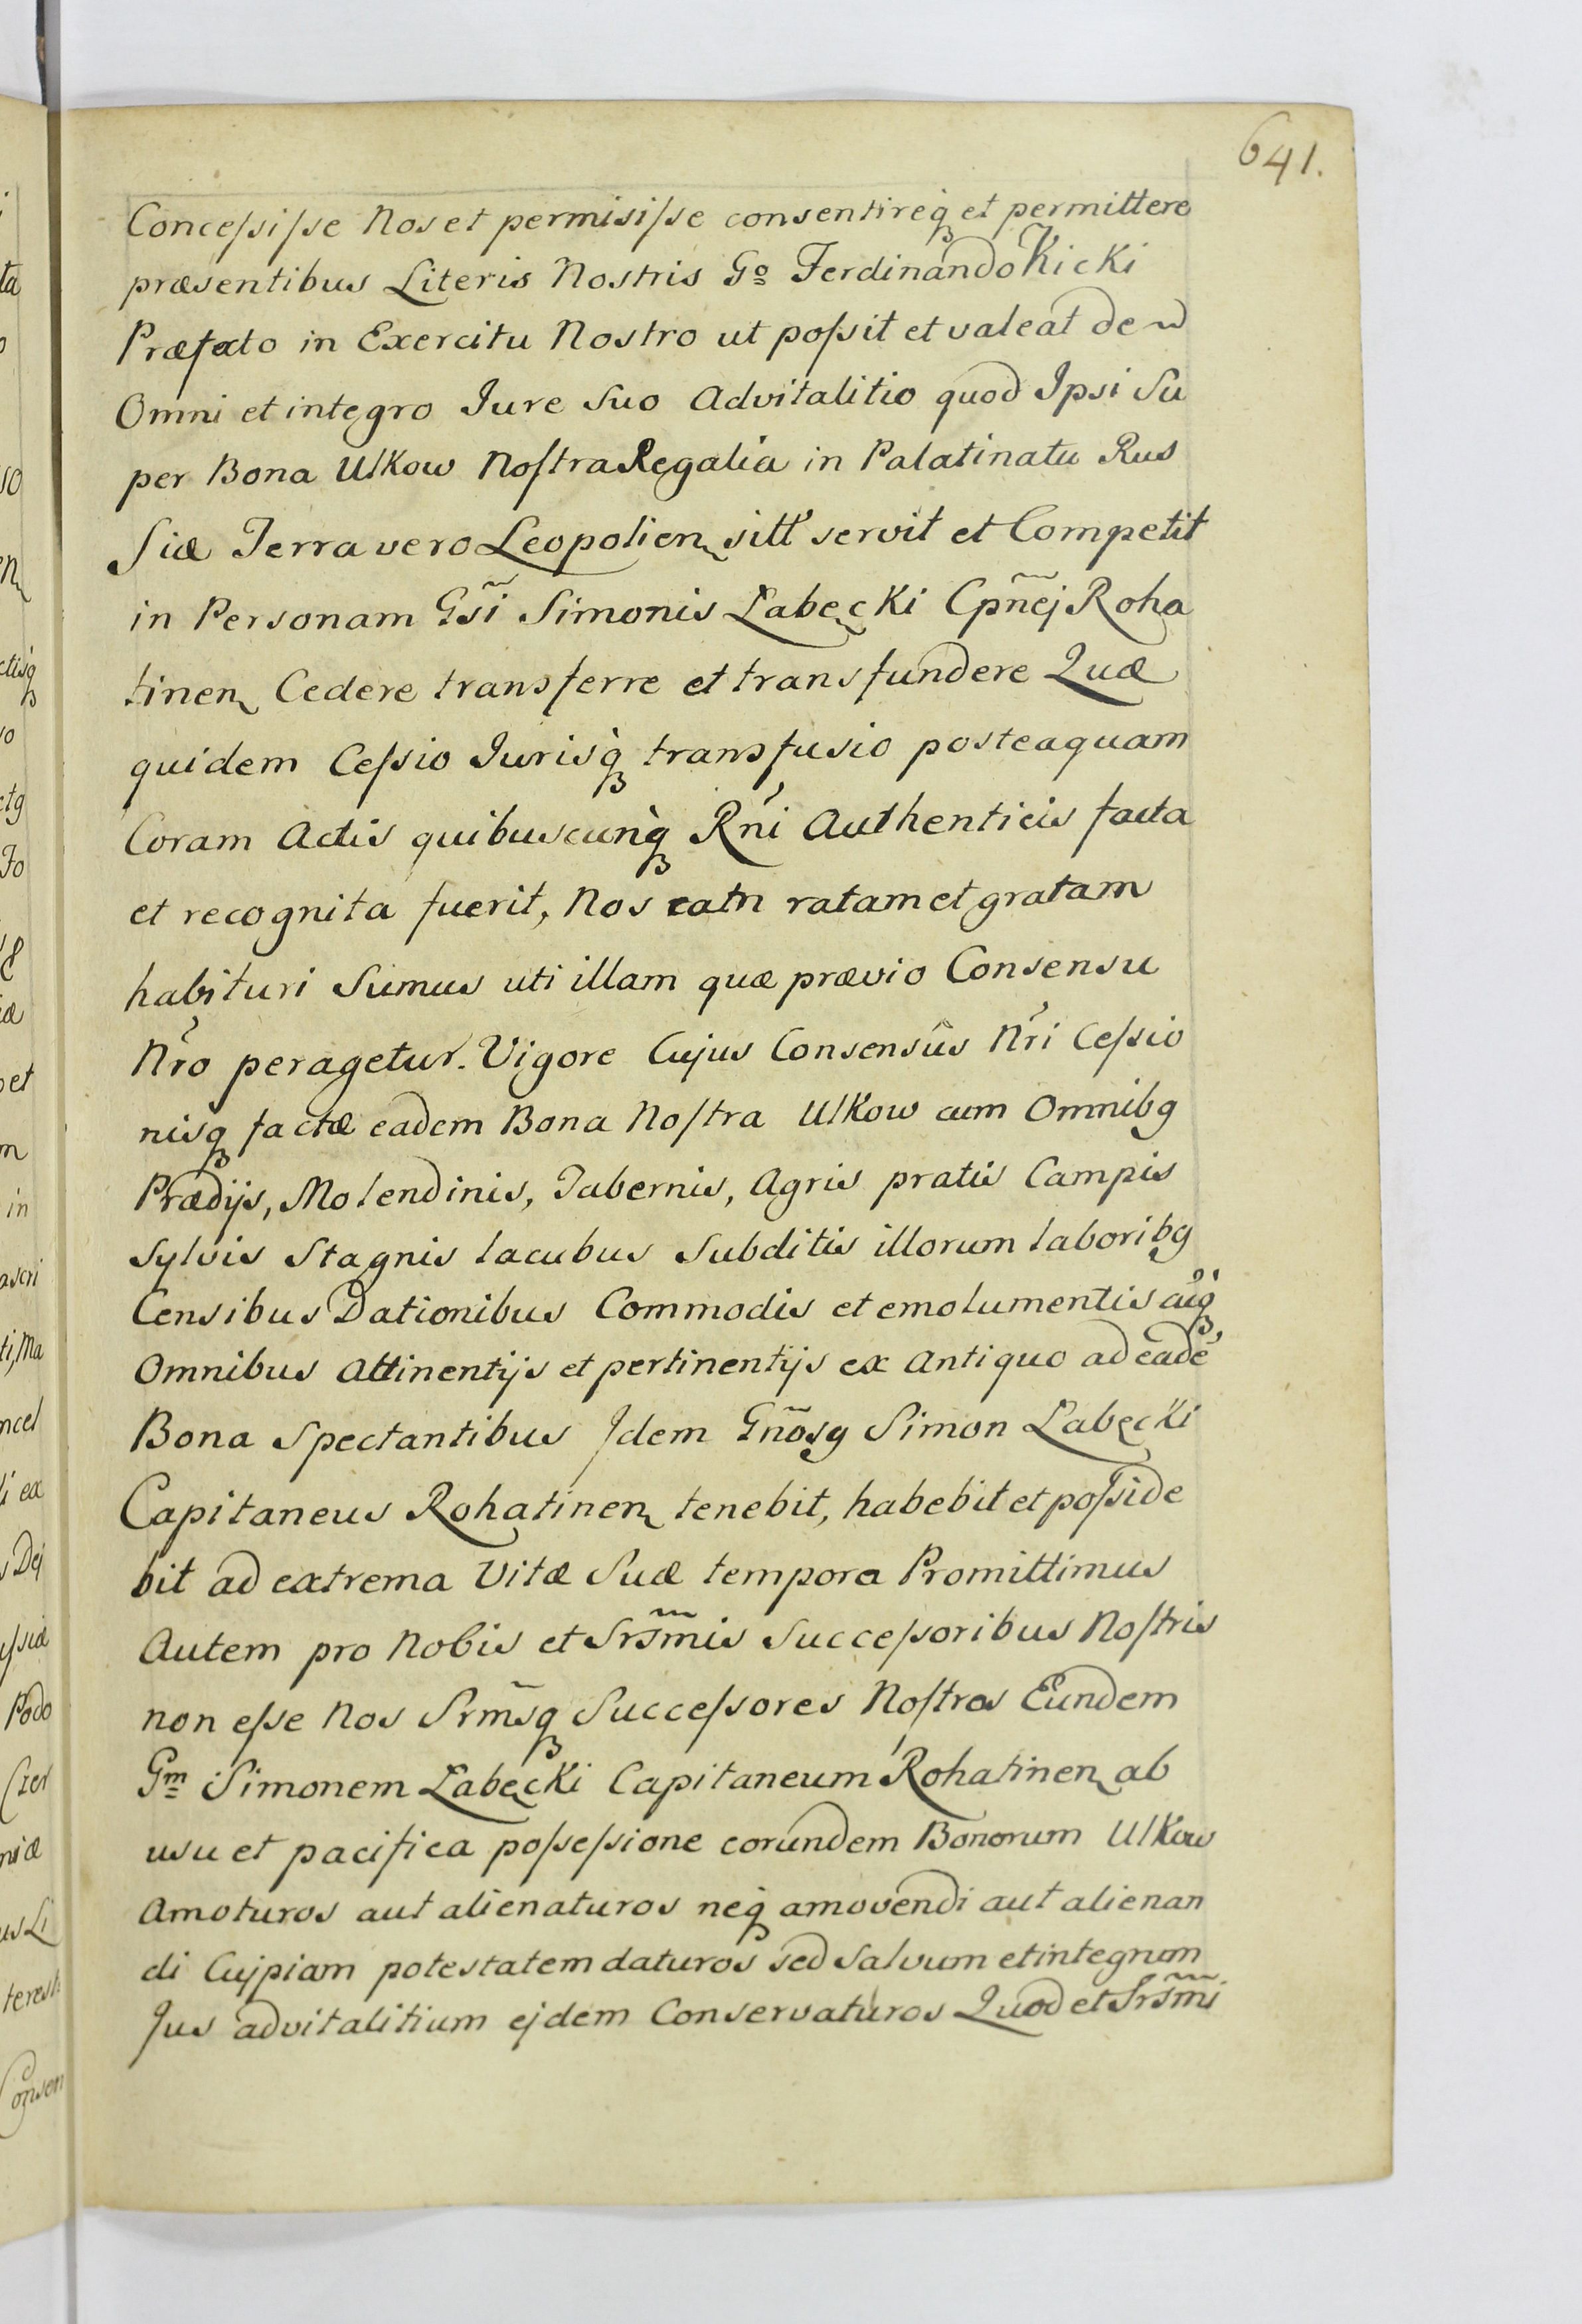 641.
Conceſsiſse Nos et permisiſse consentireq̀ʒ et permittere
præsentibus Literis Nostris Go Ferdinando Kicki
Præfecto in Exercitu Nostro ut poſsit et valeat de
Omni et integro Jure Suo Advitalitio quod Ipsi Su
per Bona Ulkow Noſtra Regalia in Palatinatu Rus
Siæ Terra vero Leopolien sitt' servit et Competit
in Personam Gsĩ Simonis Łabęcki Cpñej Roha
tinen Cedere transferre et transfundere Quæ
quidem Ceſsio Jurisq̀ʒ transfusio posteaquam
Coram Actis quibuscunq̀ʒ Rn̉i Authenticis facta
et recognita fuerit, Nos eam ratam et gratam
habituri Sumus uti illam quæ prævio Consensu
Nr̉o peragetur. Vigore Cujus Consensûs Nr̉i Ceſsio
nisqʒ factæ eadem Bona Noſtra Ulkow cum Omnibg
Prædijs, Molendinis, Tabernis, Agris pratis Campis
Sylvis Stagnis lacubus Subditis illorum laboribg
Censibus Dationibus Commodis et emolumentis aiq̀ʒ
Omnibus Attinentijs et pertinentijs ex Antiquo ad eadē
Bona Spectantibus Jdem Gñosg Simon Łabęcki
Capitaneus Rohatinen tenebit, habebit et poſside
bit ad extrema Vitæ Suæ tempora Promittimus
Autem pro Nobis et Srsm̃is Succeſsoribus Noſtris
non eſse Nos Srm̃sqʒ Succeſsores Noſtros Eundem
Gm Simonem Łabęcki Capitaneum Rohatinen ab
usu et pacifica poſseſsione eorundem Bonorum Ulkow
Amoturos aut alienaturos neq̀ʒ amovendi aut alienan
di Cujpiam potestatem daturos sed Salvum et integrum
Jus advitalitium ejdem Conservaturos Quod et Srsm̃i